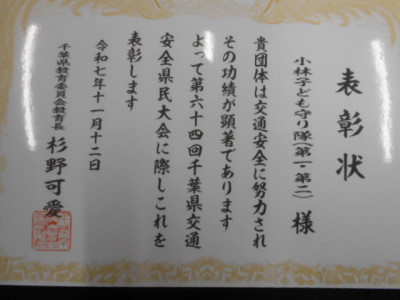 表彰状
小林子ども守り隊(第一・第二) 様
貴団体は交通安全に努力され
その功績が顕著であります
よって第六十四回千葉県交通
安全県民大会に際しこれを
表彰します
令和七年十一月十二日
千葉県教育委員会教育長 杉野可愛